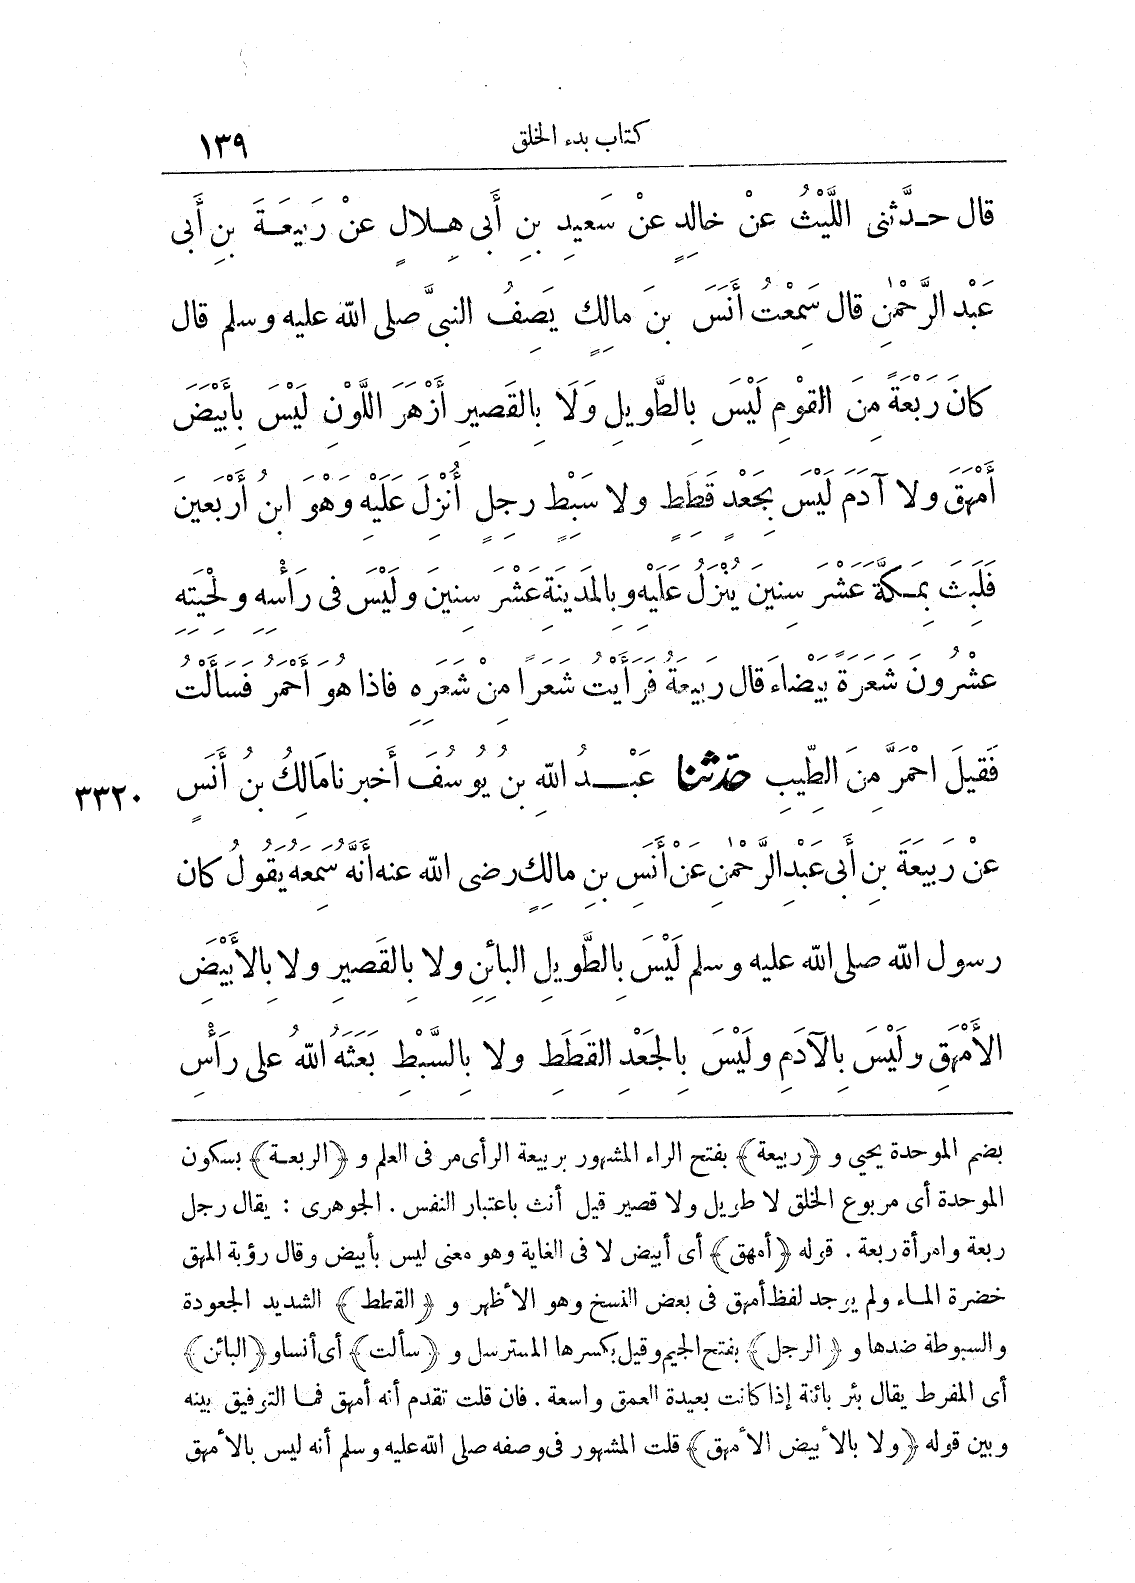 كتاب بدء الخلق
١٣٩
قال حدَّثنى اللَّيْثُ عنْ خالِدٍ عنْ سَعِيدِ بنِ أبى هِلالٍ عنْ رَبيعَةَ بنِ أبى
عَبْدِ الرَّحْمٰنِ قال سَمِعْتُ أنَسَ بنَ مالِكٍ يَصِفُ النبىَّ صلى الله عليه وسلم قال
كانَ رَبْعَةً مِنَ القوْمِ لَيْسَ بِالطَّويلِ وَلَا بِالقَصيرِ أزْهَرَ اللَّوْنِ لَيْسَ بِأبْيَضَ
أمْهَقَ ولا آدَمَ لَيْسَ بِجَعْدٍ قَطَطٍ ولا سَبْطٍ رجِلٍ أُنْزِلَ عَلَيْهِ وهْوَ ابنُ أرْبَعِينَ
فَلَبِثَ بِمَكَّةَ عَشْرَ سِنينَ يُنْزَلُ عَلَيْهِ وبِالمَدينَةِ عَشْرَ سِنِينَ ولَيْسَ فى رَأْسِهِ ولِحْيَتِهِ
عشْرُونَ شَعَرَةً بَيْضاءَ قال رَبيعَةُ فَرَأيْتُ شَعَرًا مِنْ شَعَرِهِ فاذا هُوَ أحْمَرُ فَسَألْتُ
فَقيلَ احْمَرَّ مِنَ الطِّيبِ حدّثنا عَبْدُ اللهِ بنُ يُوسُفَ أخبرنا مَالِكُ بنُ أنَسٍ
٣٣٢٠
عنْ رَبيعَةَ بنِ أبى عَبْدِ الرَّحْمٰنِ عَنْ أنَسِ بنِ مالِكٍ رضى الله عنه أنَّهُ سَمِعَهُ يقولُ كان
رسول الله صلى الله عليه وسلم لَيْسَ بِالطَّويلِ البائِنِ ولا بِالقَصيرِ ولا بِالأبْيَضِ
الأمْهَقِ ولَيْسَ بِالآدَمِ ولَيْسَ بِالجَعْدِ القَطَطِ ولا بِالسَّبْطِ بَعَثَهُ اللهُ على رَأْسِ
بضم الموحدة يحيى و ﴿ربيعة﴾ بفتح الراء المشهور بربيعة الرأى مر فى العلم و ﴿الربعة﴾ بسكون
الموحدة أى مربوع الخلق لا طويل ولا قصير قيل أنث باعتبار النفس . الجوهرى : يقال رجل
ربعة وامرأة ربعة . قوله ﴿أمهق﴾ أى أبيض لا فى الغاية وهو معنى ليس بأبيض وقال رؤبة المهق
خضرة الماء ولم يوجد لفظ أمهق فى بعض النسخ وهو الأظهر و ﴿القطط﴾ الشديد الجعودة
والسبوطة ضدها و ﴿الرجل﴾ بفتح الجيم وقيل بكسرها المسترسل و ﴿سألت﴾ أى أنسا و ﴿البائن﴾
أى المفرط يقال بئر بائنة إذا كانت بعيدة العمق واسعة . فان قلت تقدم أنه أمهق فما التوفيق بينه
وبين قوله ﴿ولا بالأبيض الأمهق﴾ قلت المشهور فى وصفه صلى الله عليه وسلم أنه ليس بالأمهق